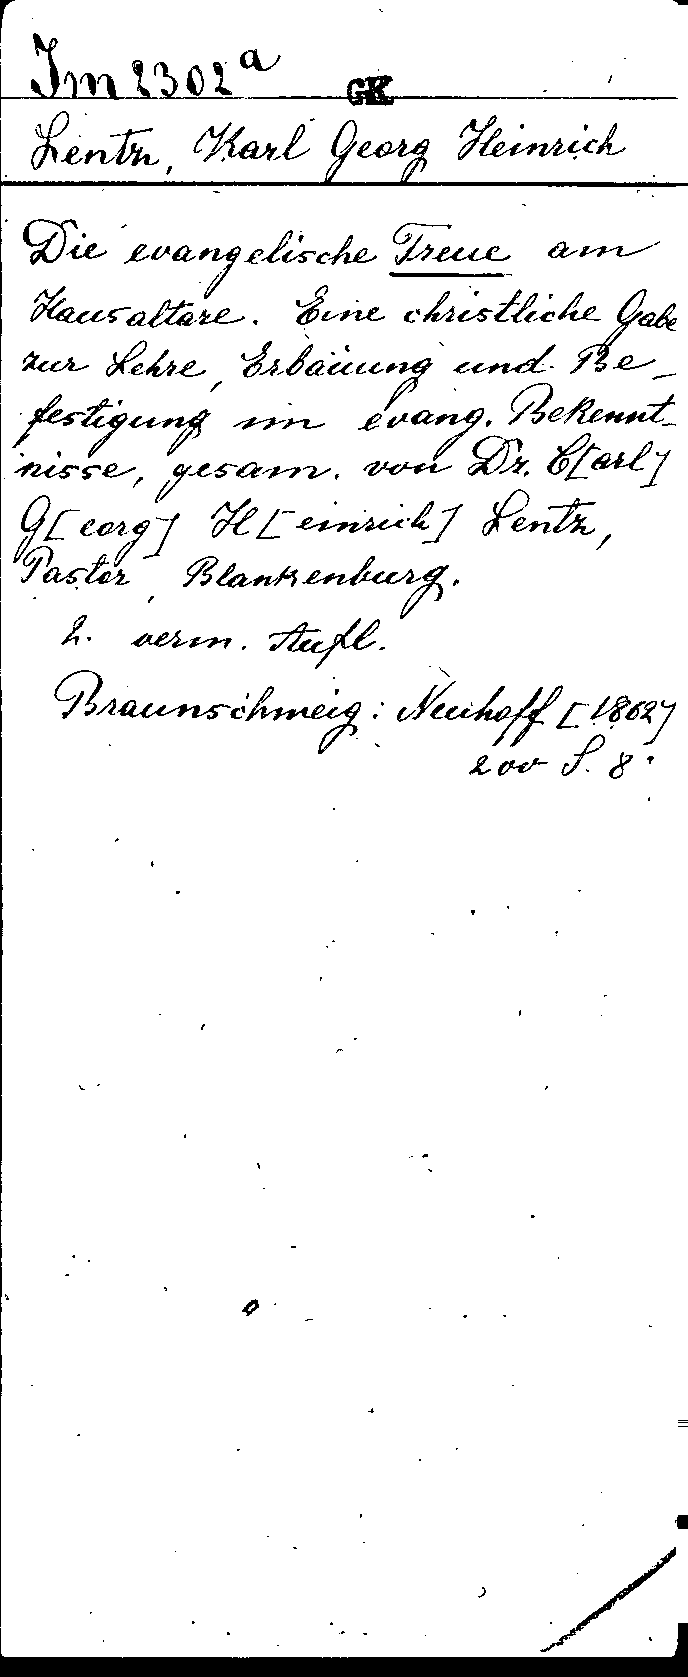 Im 2302a
GK
Lentz, Karl Georg Heinrich
Die evangelische Treue am
Hausaltare. Eine christliche Gabe
zur Lehre, Erbauung und Be-
festigung im evang. Bekennt-
nisse, gesam. von Dr. C[arl]
G[eorg] H[einrich] Lentz,
Pastor, Blankenburg.
2. verm. Aufl.
Braunschweig: Neuhoff [1862]
200 S. 8°